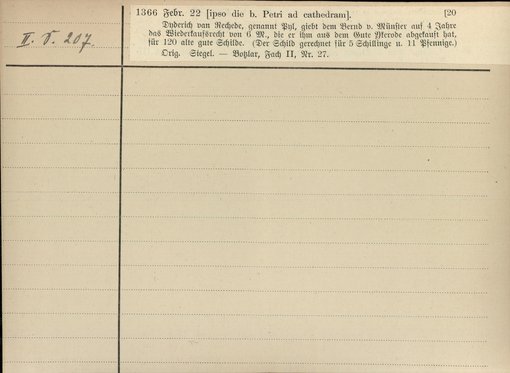 1366 Febr. 22 [ipso die b. Petri ad cathedram]. [20
Dyderich van Rechede, genannt Pyl, giebt dem Bernd v. Münster auf 4 Jahre
das Wiederkaufsrecht von 6 M., die er ihm aus dem Gute Ykerode abgekauft hat,
für 120 alte gute Schilde. (Der Schild gerechnet für 5 Schillinge u. 11 Pfennige.)
Orig. Siegel. — Botzlar, Fach II, Nr. 27.
II. V. 207